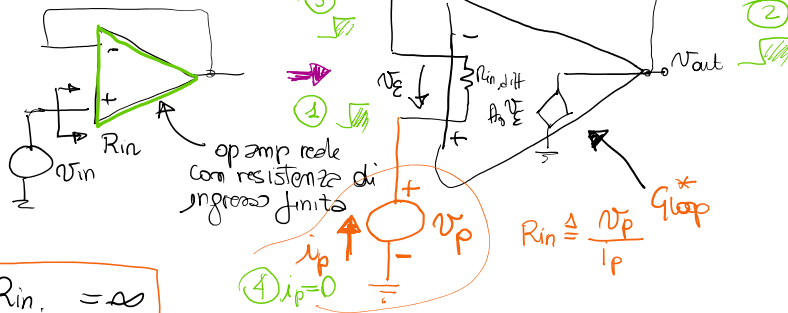 -
+
Rin
vin
op amp reale
con resistenza di
ingresso finita
Rin. = ∞
3
1
2
-
vε
Rin,diff
A0 vε
+
vout
+
vp
-
ip
4 ip=0
Gloop*
Rin ≜ vp
ip